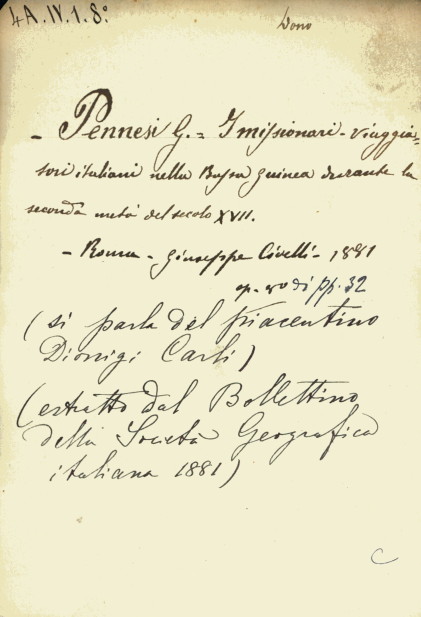 4A.IV.1.8º
Dono
- Pennesi G. = I missionari - viaggia=
tori italiani nella Bassa Guinea durante la
seconda metà del secolo XVII.
- Roma - Giuseppe Civelli - 1881
op. 8º di pp. 32
(si parla del piacentino
Dionigi Carli)
(estratto dal Bollettino
della Società Geografica
italiana 1881)
C